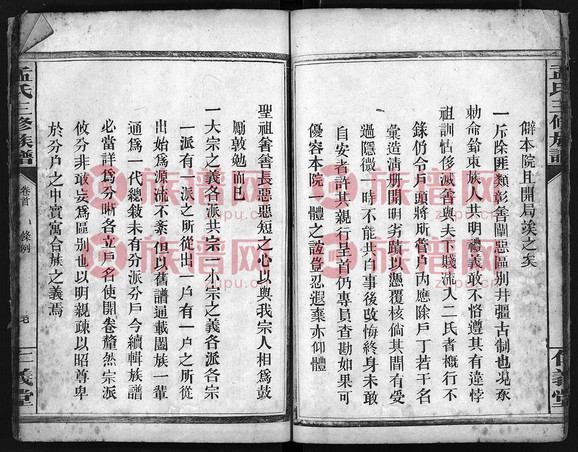 孟氏三修族譜
僻本院且開局之矣
一斥除匪類彰善闡惡區別井疆古制也現奉
勅命飭束族人共明禮義敢不恪遵其有違悖
祖訓怙侈滅舍與夫下賤流人二氏者概行不
錄仍令戶頭將所管戶內應除戶丁若干名
彙造清册開明劣蹟以憑覆核倘其間有受
過隱微一時不能共白事後改悔終身未敢
自安者許其親行呈首仍專員查勘如果可
優容本院一體之誼豈忍遐棄亦仰體
聖祖善善長惡惡短之心以與我宗人相爲鼓
勵敦勉而已
一大宗之義各派共宗一小宗之義各派各宗
一派有一派之所從出一戶有一戶之所從
出始爲源流不紊但以舊譜通載閤族一輩
通爲一代總敘未有分派分戶今續輯族譜
必當詳爲分晰各立戶名使開卷釐然宗派
攸分非敢妄爲區別也以明親疎以昭尊卑
於分戶之中實寓合族之義焉
孟氏三修族譜
卷首
條例
仁義堂
族譜网